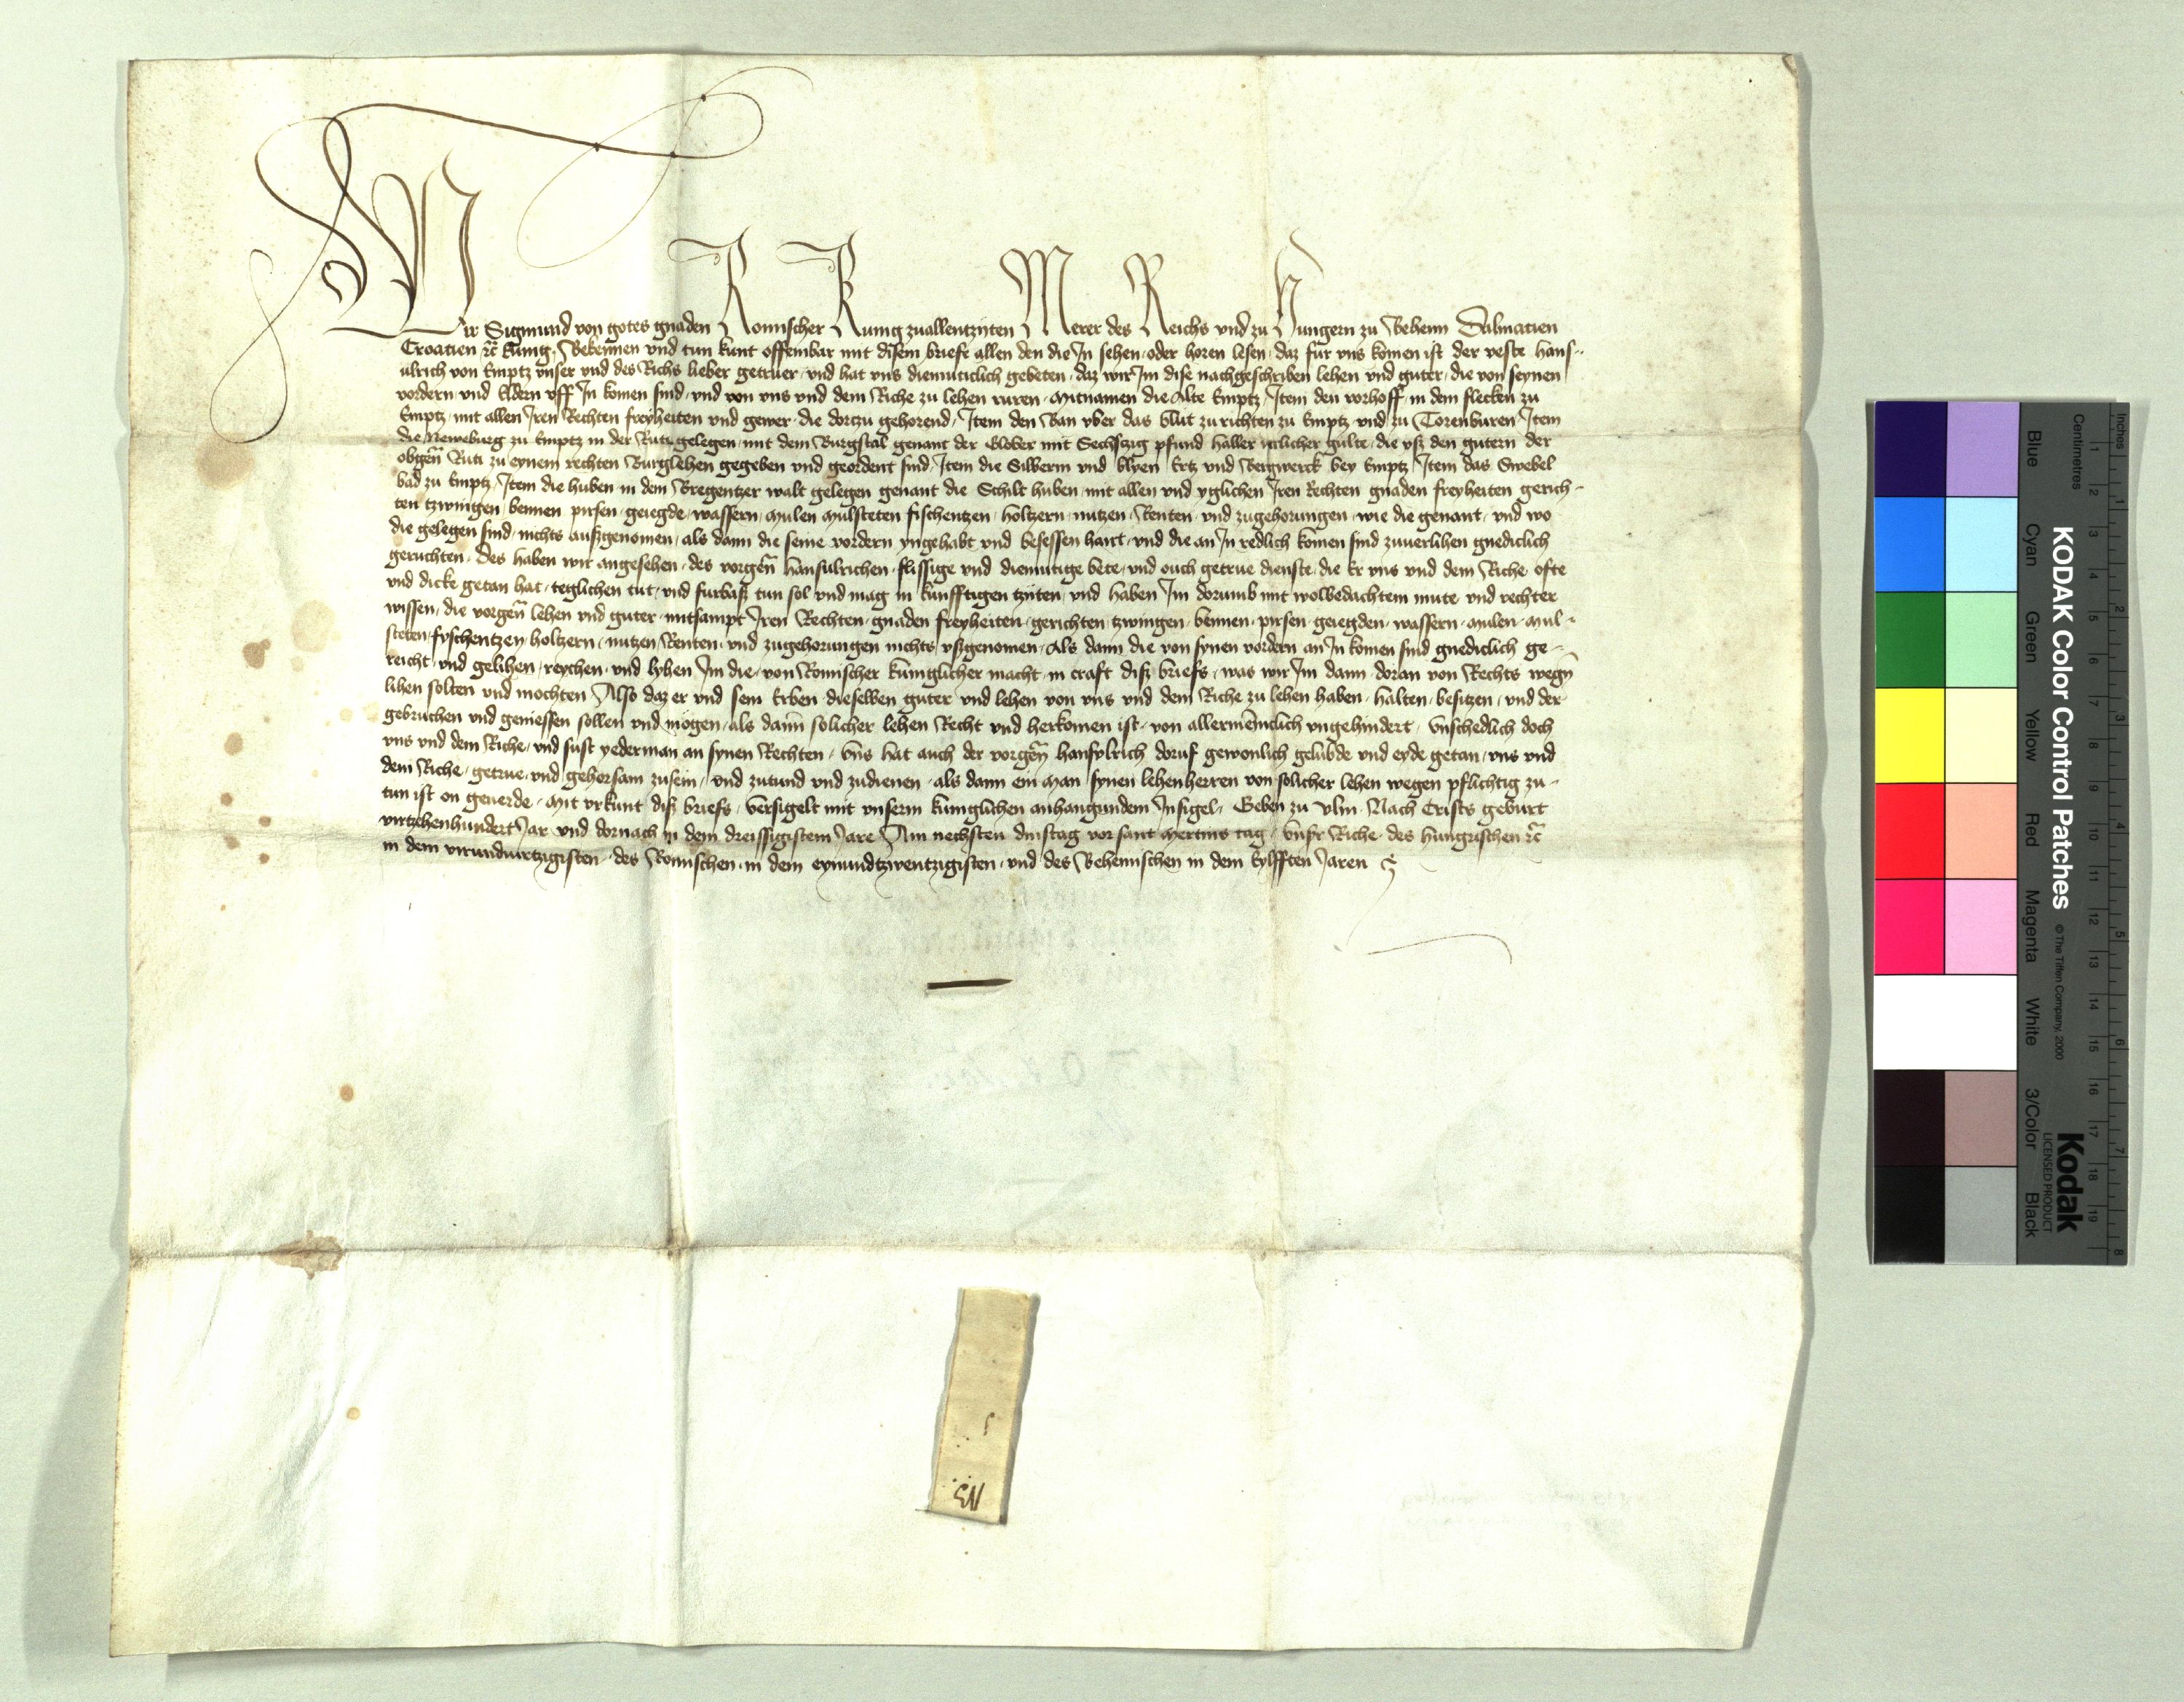 Wir Sigmund von gotes gnaden Romischer Kunig zuallentzyten Merer des Reichs vnd zu Hungern zu Behem Dalmatien
Croatien ꝛc̄ kunig, Bekennen vnd tun kunt offembar mit disem briefe allen den die In sehen oder horen lesen, daz fur vns komen ist der veste Hans-
ulrich von Emptz vnser vnd des Richs lieber getruer, vnd hat vns diemuticlich gebeten, daz wir Im dise nachgeschriben lehen vnd guter, die von seynen
vordern vnd Eldern vff In komen sind, vnd von vns vnd dem Riche zu lehen ruren, Mitnamen die Alte Emptz, Item den vorhoff in dem flecken zu
Emptz, mit allen Iren Rechten freyheiten vnd gewer, die dortzu gehorend, Item den Ban vber das blut zurichten zu Emptz vnd zu Torenburen Item
die Neweburg zu Emptz in der Ruti gelegen, mit dem Burgstal genant der Glober mit Sechszig pfund haller ierlicher gulte, die vsz den gutern der
obgeñ Ruti zu eynem rechten Burglehen gegeben vnd geordent sind, Item die Silberin vnd blyen Ertz vnd Bergwerck bey Emptz, Item das Swebel
bad zu Emptz, Item die huben in dem Bregentzer walt gelegen genant die Schilt huben, mit allen vnd yglichen Iren Rechten gnaden freyheiten gerich-
ten tzwingen, bennen pirsen, geiegde, wassern, Mulen Mulsteten fischentzen, holtzern, nutzen, Renten vnd zugehorungen, wie die genant, vnd wo
die gelegen sind, nichts auszgenomen, als dann die seine vordern yngehabt vnd besessen hant, vnd die an In redlich komen sind zuuerlihen gnediclich
geruchten, des haben wir angesehen, des vorgeñ hansulrichen, flissige vnd diemutige bete, vnd ouch getrue dienste, die Er vns vnd dem Riche, ofte
vnd dicke getan hat, teglichen tut, vnd furbasz tun sol vnd mag in kunfftigen tzyten, vnd haben Im dorumb mit wolbedachtem mute vnd rechter
wissen, die vorgeñ lehen vnd guter, mitsampt Iren Rechten, gnaden freyheiten, gerichten, tzwingen, bennen, pirsen, geiegden, wassern, Mulen, Mul-
steten, fyschentzen, holtzern, nutzen, Renten, vnd zugehorungen nichts, vszgenomen, Als dann die von synen vordern an In komen sind gnediclich ge-
reicht, vnd gelihen, reychen, vnd lyhen Im die, von Romischer kuniglicher macht, in craft disz briefs, was wir Im dann doran von Rechts wegñ
lihen solten vnd mochten Also daz er vnd sein Erben dieselben guter vnd lehen von vns vnd dem Riche zu lehen haben, halten, besitzen, vnd der
gebruchen vnd geniessen sollen vnd mogen, als dann solicher lehen Recht vnd herkomen ist, von allermenclich vngehindert, Vnschedlich doch
vns vnd dem Riche, vnd sust yederman an synen Rechten, Vns hat auch der vorgeñ hansvlrich doruf gewonlich gelubde vnd eyde getan, vns vnd
dem Riche, getrue vnd gehorsam zusein, vnd zutund vnd zudienen, als dann ein Man synen lehenherren von solicher lehen wegen pflichtig zu-
tun ist on geuerde, Mit vrkunt disz briefs, Versigelt mit vnserm kuniglichen anhangundem Insigel, Geben zu Vlm, Nach Crists geburt
virtzehenhundert Jar vnd dornach in dem dreissigistem Jare Am nechsten dinstag vor sant Mertins tag, Vnsr Riche des Hungrischen ꝛc̄
in dem virundvirtzigisten, des Romischen, in dem eynundtzwentzigisten, vnd des Behemischen in dem Eylfften Jaren
KODAK Color Control Patches
© The Tiffen Company, 2000
Kodak
LICENSED PRODUCT
Blue Cyan Green Yellow Red Magenta White 3/Color Black
Inches 1 2 3 4 5 6 7 8
Centimetres 1 2 3 4 5 6 7 8 9 10 11 12 13 14 15 16 17 18 19